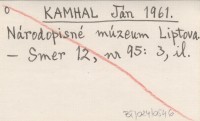 KAMHAL Ján 1961.
Národopisné múzeum Liptova
— Smer 12, nr 95: 3, il.